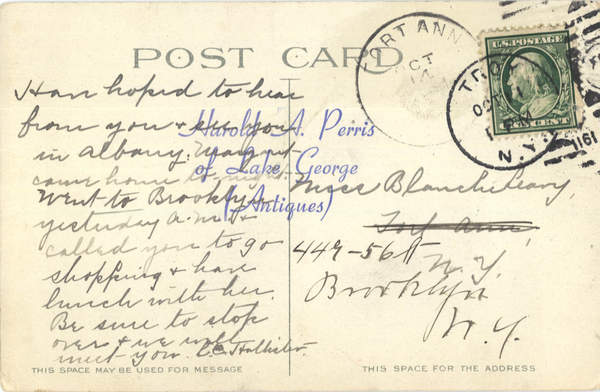 POST CARD
FORT ANN
OCT
U.S. POSTAGE
TROY
OCT
PM
N.Y.
1911
Harold A. Perris
of Lake George
(Antiques)
Have hoped to hear
from you & see you
in Albany.
came home
Went to Brooklyn
yesterday A.M. &
called you to go
shopping & have
lunch with her.
Be sure to stop
over & we will
meet you. C.C. Hollister
Miss Blanche Leavy,
Fort Ann
449-56 St
N.Y.
Brooklyn
N.Y.
THIS SPACE MAY BE USED FOR MESSAGE
THIS SPACE FOR THE ADDRESS